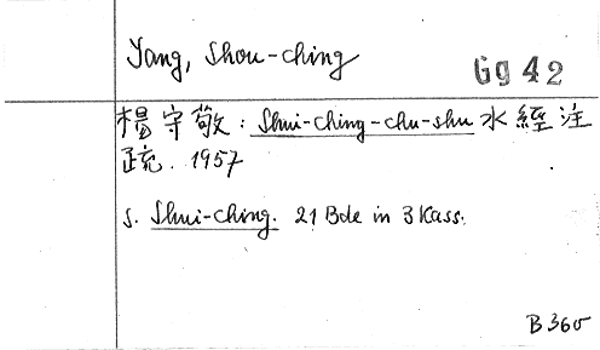 Yang, Shou-ching
Gg 42
楊守敬: Shui-ching-chu-shu 水經注
疏. 1957
s. Shui-ching. 21 Bde in 3 Kass.
B 360